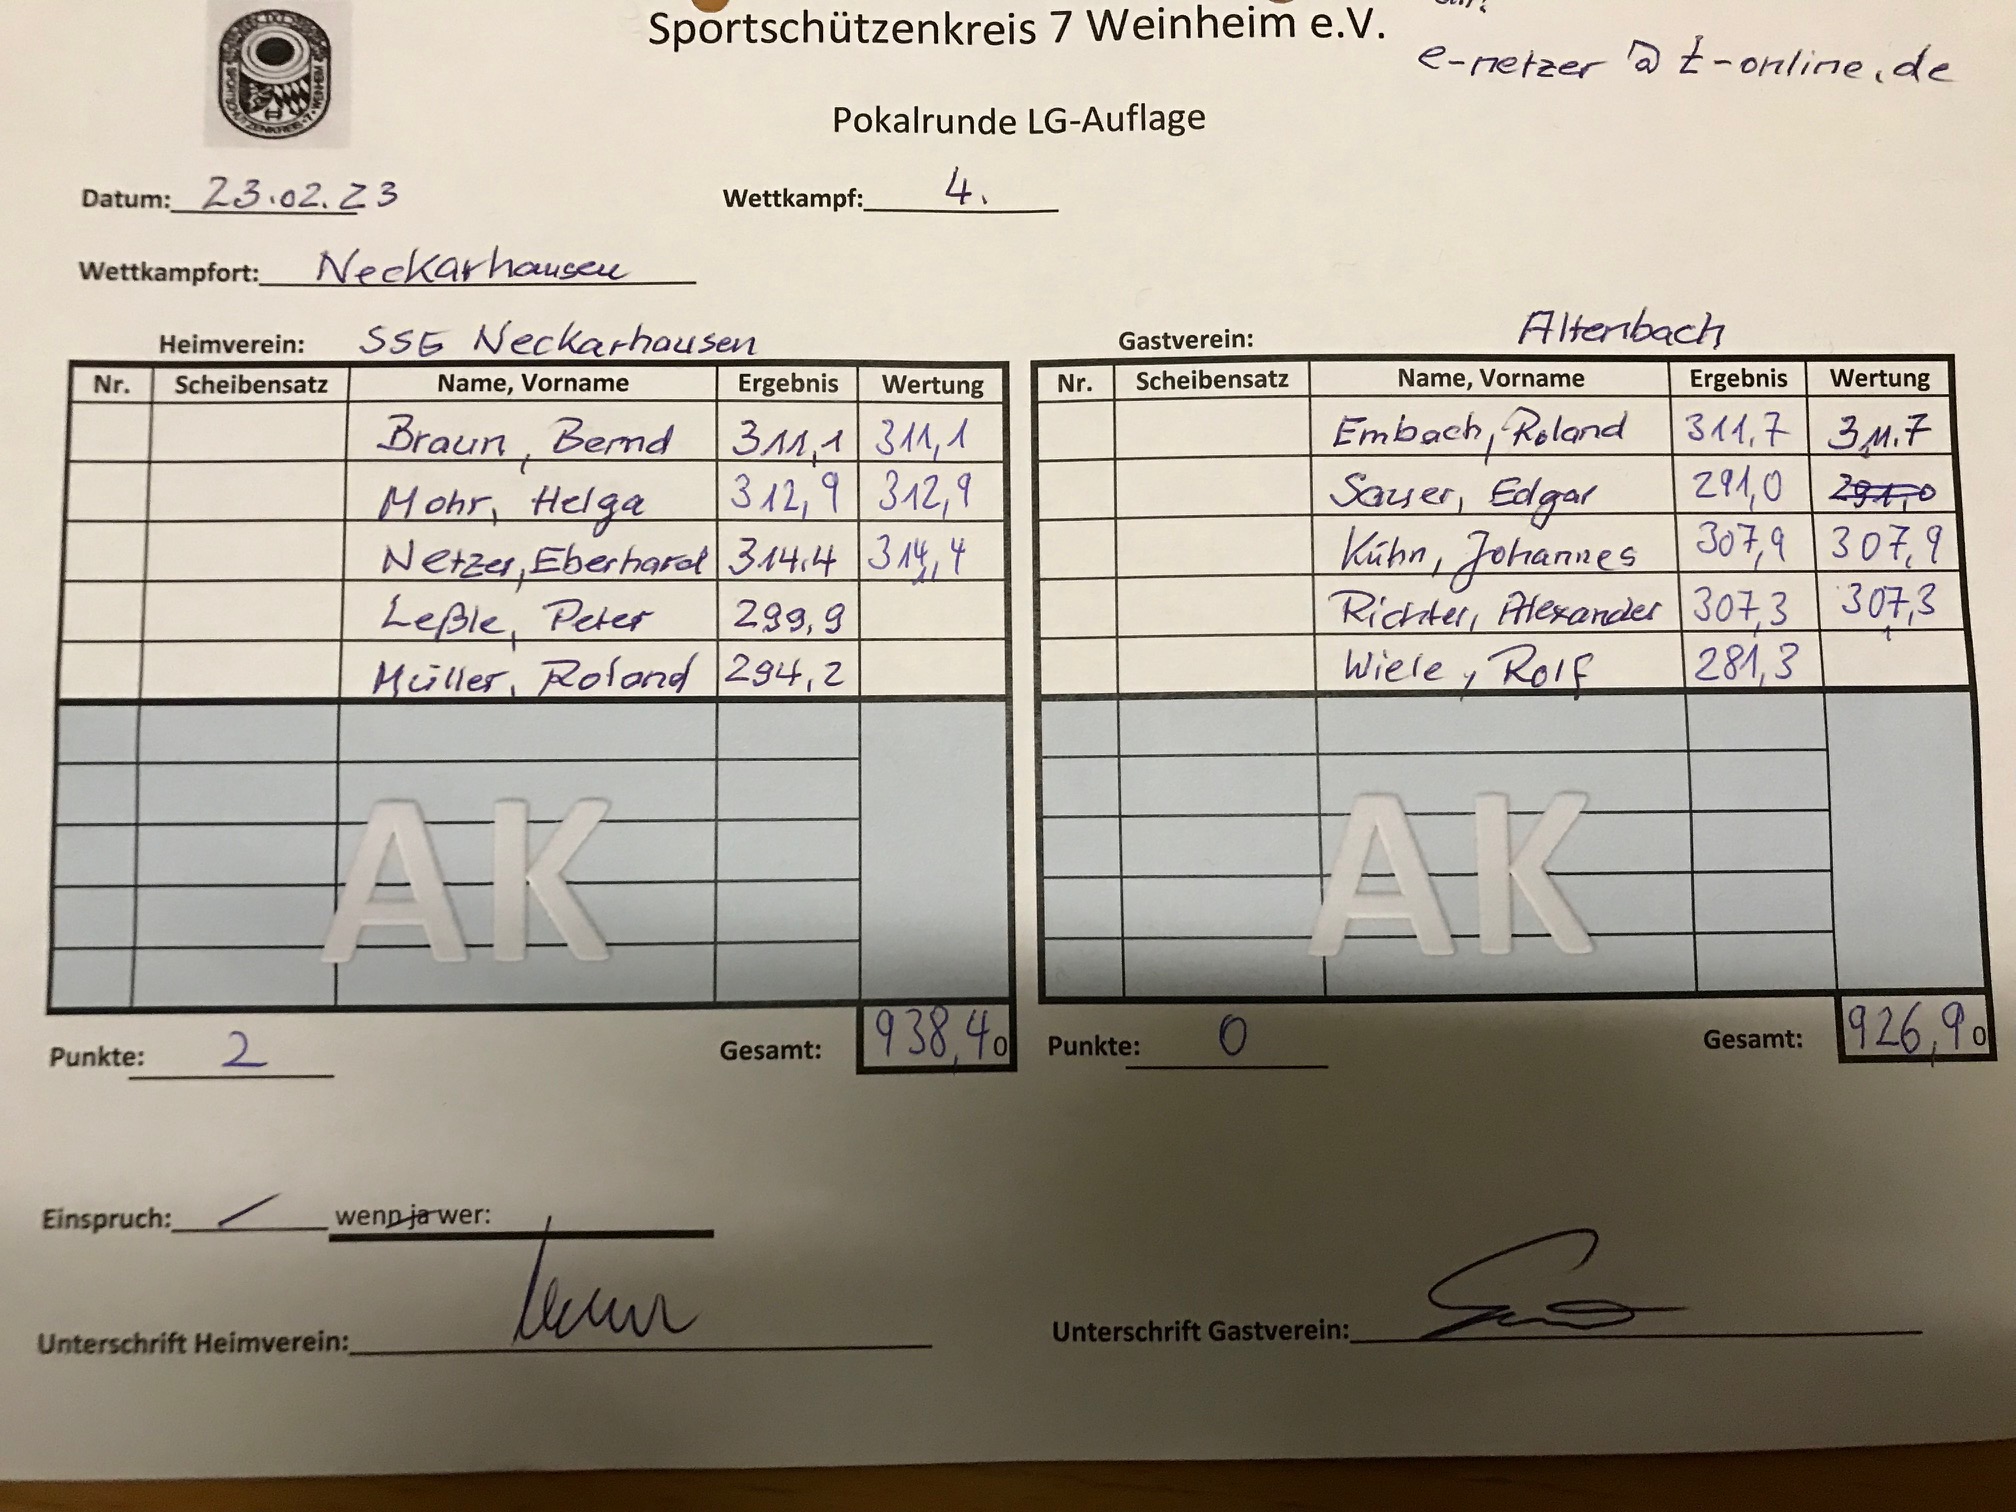 Sportschützenkreis 7 Weinheim e.V.
e-netzer @ t-online.de
Pokalrunde LG-Auflage
Datum: 23.02.23 Wettkampf: 4.
Wettkampfort: Neckarhausen
Heimverein: SSG Neckarhausen Gastverein: Altenbach
Nr. Scheibensatz Name, Vorname Ergebnis Wertung Nr. Scheibensatz Name, Vorname Ergebnis Wertung
Braun, Bernd 311,1 311,1 Embach, Roland 311,7 311.7
Mohr, Helga 312,9 312,9 Sauer, Edgar 291,0 291,0
Netzer, Eberhard 314.4 314,4 Kühn, Johannes 307,9 307,9
Leßle, Peter 299,9 Richter, Alexander 307,3 307,3
Müller, Roland 294,2 Wiele, Rolf 281,3
AK AK
Punkte: 2 Gesamt: 938,40 Punkte: 0 Gesamt: 926,90
Einspruch: / wenn ja wer:
Unterschrift Heimverein: Unterschrift Gastverein: